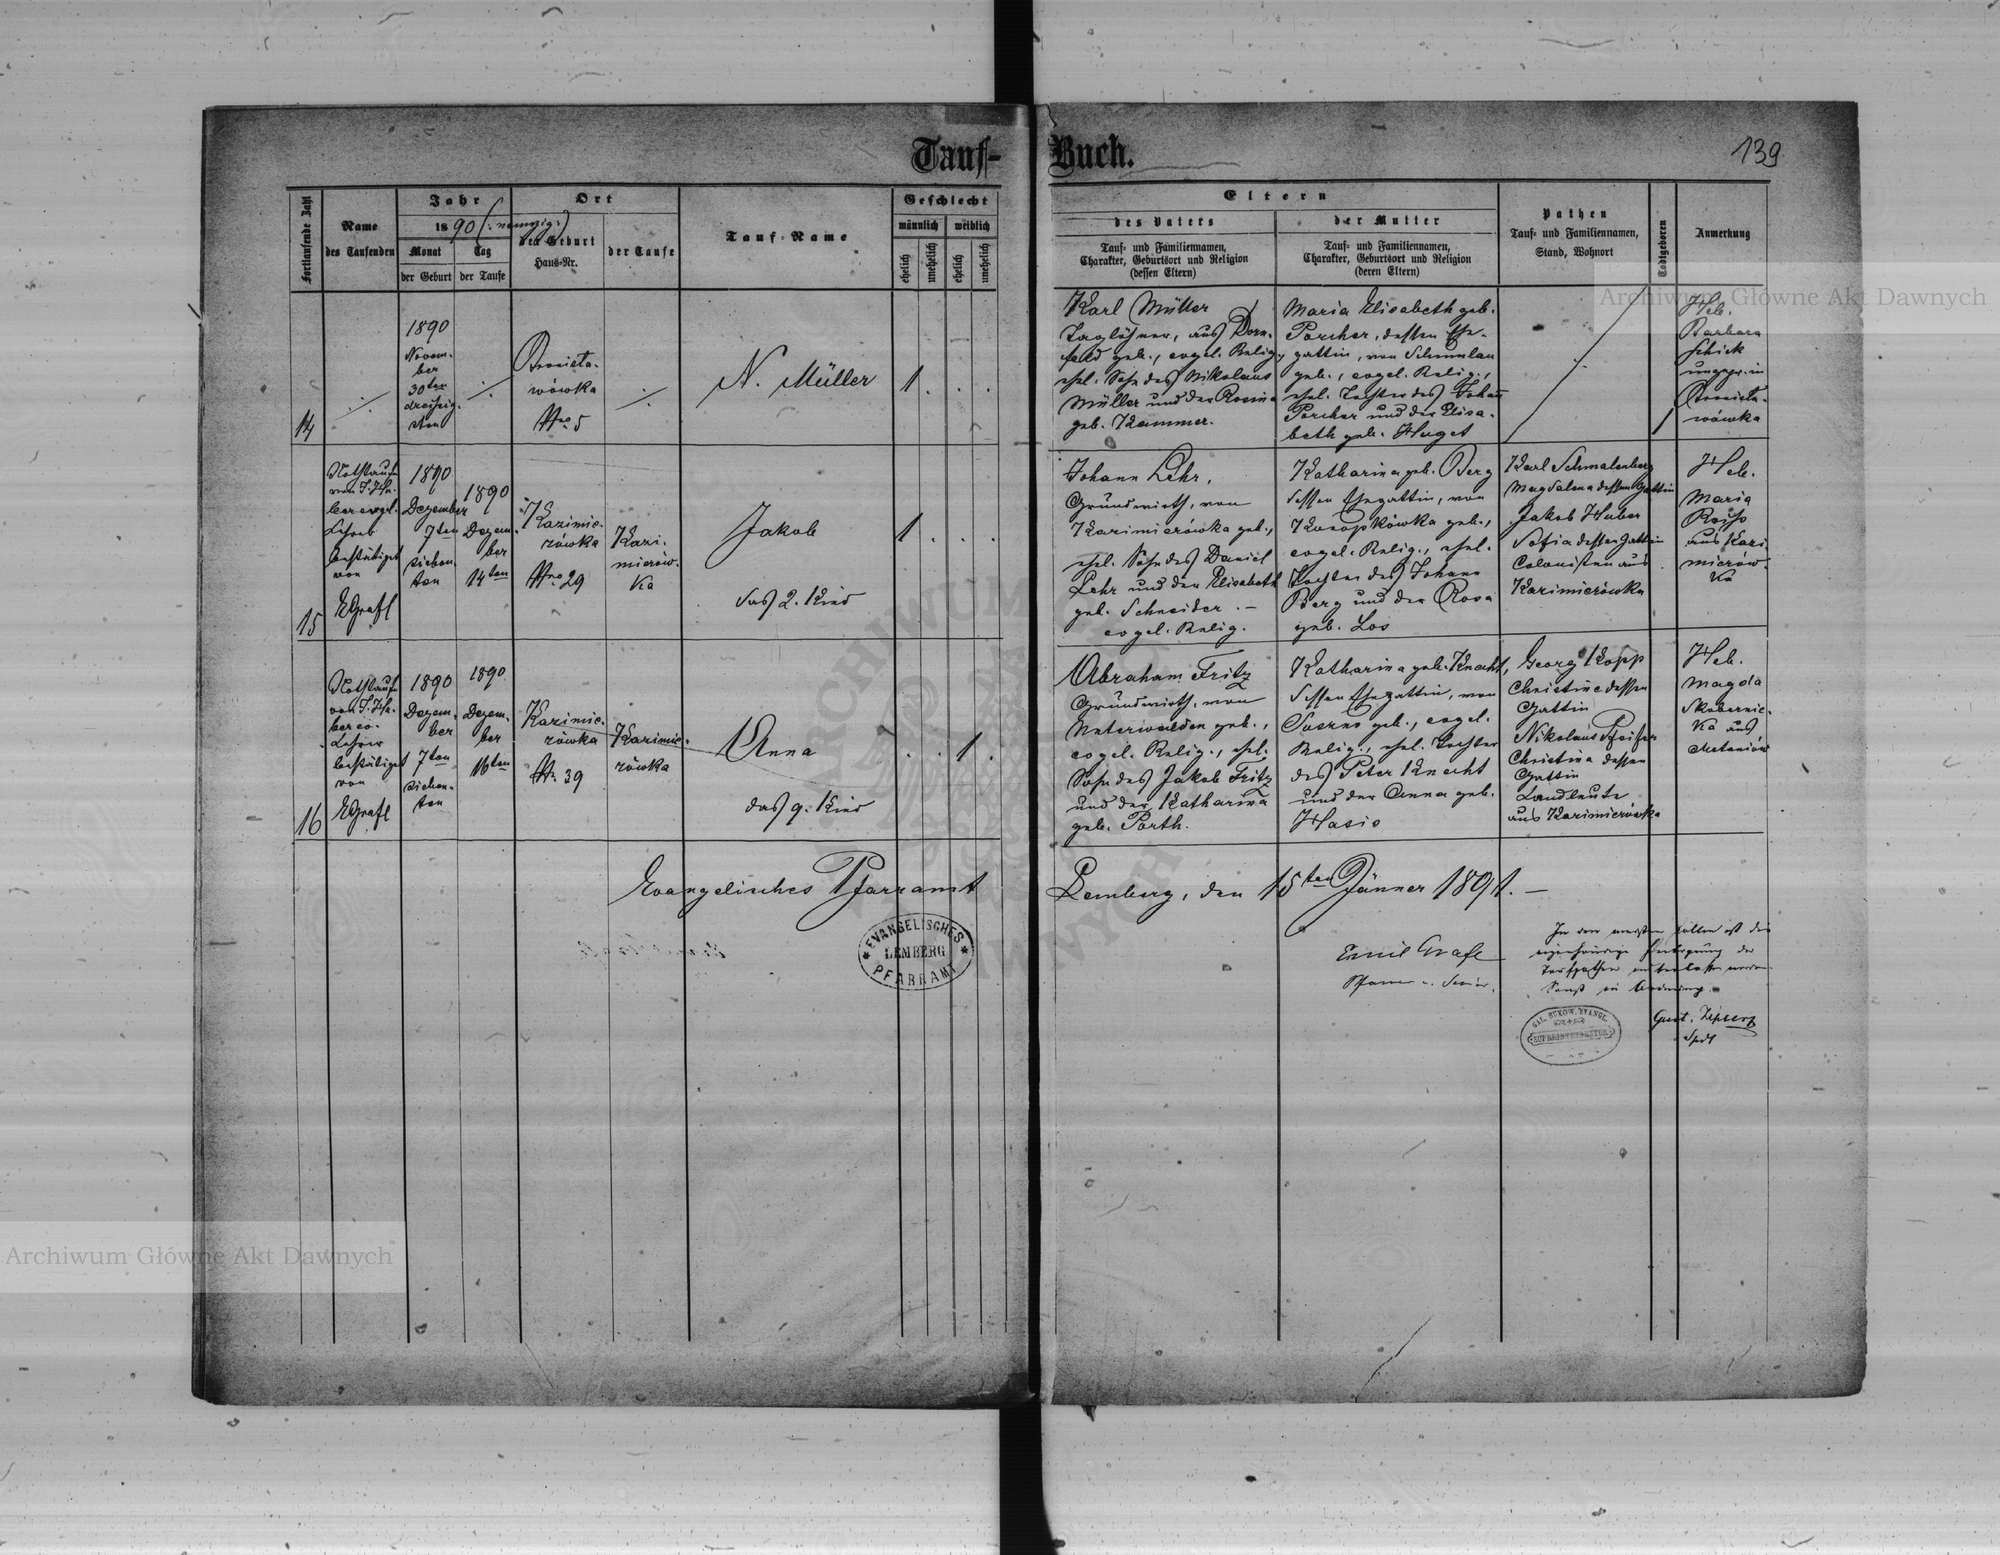 Tauf-
Buch.
139
Fortlaufende Zahl
Name
des Taufenden
Jahr
1890 (: neunzig :)
Monat
Tag
der Geburt
der Taufe
Ort
der Geburt
Haus-Nr.
der Taufe
Tauf-Name
Geschlecht
männlich
weiblich
ehelich
unehelich
ehelich
unehelich
Eltern
des Vaters
Tauf- und Familiennamen,
Charakter, Geburtsort und Religion
(dessen Eltern)
der Mutter
Tauf- und Familiennamen,
Charakter, Geburtsort und Religion
(deren Eltern)
Pathen
Tauf- und Familiennamen,
Stand, Wohnort
Todtgeboren
Anmerkung
14
1890
Novem-
ber
30ten
dreißig-
sten
wówka
Nro 5
N. Müller
1 . . .
Karl Müller
Taglöhner, aus Dorn-
feld geb., evgel. Relig.,
ehel. Sohn des Nikolaus
Müller und der Rosina
geb. Kammer.
Maria Elisabeth geb.
Porcher, dessen Ehe-
gattin, von
geb., evgel. Relig.,
ehel. Tochter des Johann
Porcher und der Elisa-
beth geb. Huget
1
Heb.
Barbara
Schick
ungepr. in
wówka
15
Nothtaufe
von J. Hu-
ber evgel.
Lehrer
bestätiget
von
EGrafl
1890
Dezember
7ten
sieben-
ten
1890
Dezem-
ber
14ten
Kazimie-
rówka
Nro 29
Kazi-
mierów-
ka
Jakob
das 2. Kind
1 . . .
Johann Lehr,
Grundwirth, von
Kazimierówka geb.,
ehel. Sohn des Daniel
Lehr und der Elisabeth
geb. Schneider. –
evgel. Relig.
Katharina geb. Berg
dessen Ehegattin, von
Kuropkówka geb.,
evgel. Relig., ehel.
Tochter des Johann
Berg und der Rosa
geb. Los
Karl Schmalenberg
Magdalena dessen Gattin
Jakob Huber
Sofia dessen Gattin
Colonisten aus
Kazimierówka
Heb.
Maria
aus Kazi
mierów-
ka
16
Nothtaufe
von J. Hu-
ber ev.
Lehrer
bestätiget
von
EGrafl
1890
Dezem-
ber
7ten
sieben-
ten
1890
Dezem-
ber
16ten
Kazimie-
rówka
Nr. 39
Kazimie-
rówka
Anna
das 9. Kind
. . 1 .
Abraham Fritz
Grundwirth, von
Unterwalden geb.,
evgel. Relig., ehel.
Sohn des Jakob Fritz
und der Katharina
geb. Porth.
Katharina geb. Knecht,
dessen Ehegattin, von
geb., evgel.
Relig., ehel. Tochter
des Peter Knecht
und der Anna geb.
Hasis
Georg Kopp
Christine dessen
Gattin
Nikolaus Pfeifer
Christina dessen
Gattin
Landleute
aus Kazimierówka
Heb.
Magda
Skobernic-
ka aus
Evangelisches Pfarramt
Lemberg, den 15ten Jänner 1891. –
EVANGELISCHES
LEMBERG
PFARRAMT
Emil Grafl
Pfarrer u. Senior.
In den meisten Fällen ist die
eigenhändige Fertigung der
Taufpathen unterlassen worden
Sonst in Ordnung.
GAL. BUKOW. EVANGL.
SUPERINTENDENTUR
Archiwum Główne Akt Dawnych
Archiwum Główne Akt Dawnych